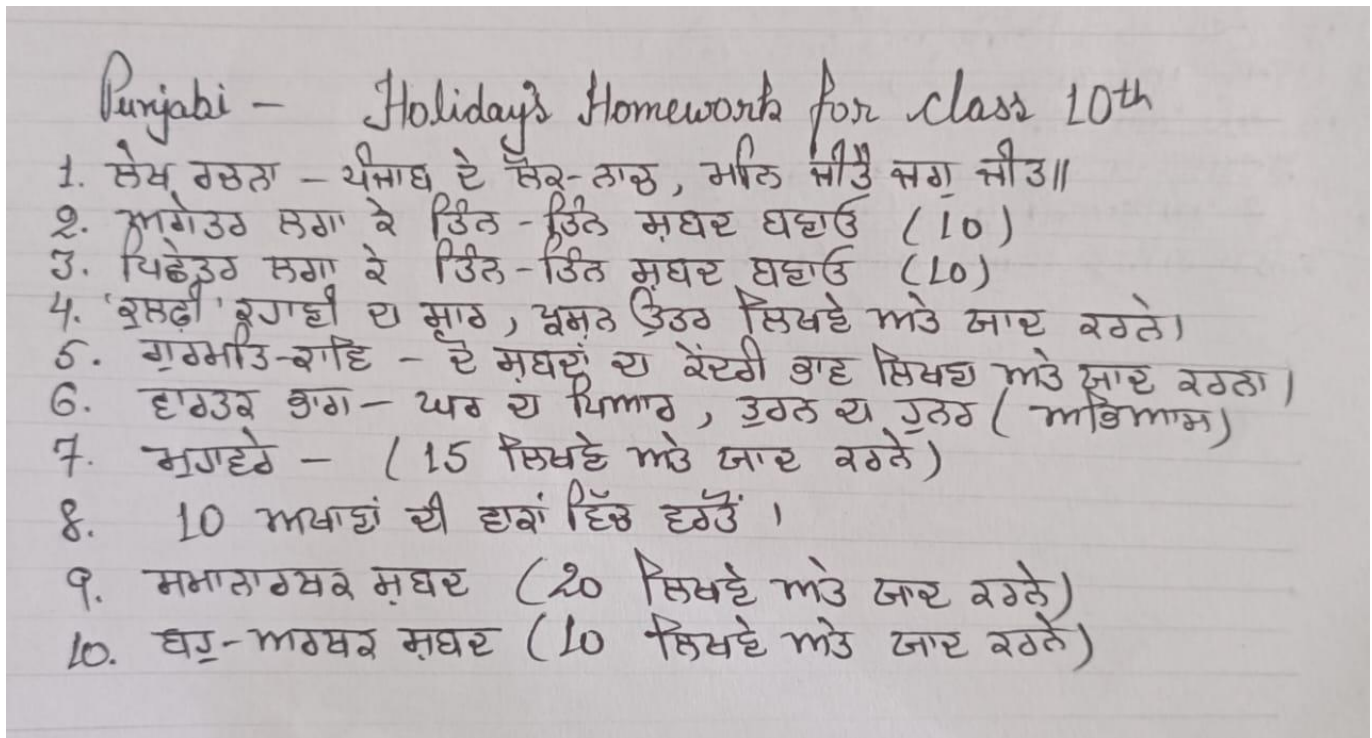 Punjabi - Holiday's Homework for class 10th
1. ਲੇਖ ਰਚਨਾ - ਪੰਜਾਬ ਦੇ ਲੋਕ-ਨਾਚ, ਮਨਿ ਜੀਤੈ ਜਗੁ ਜੀਤ॥
2. ਅਗੇਤਰ ਲਗਾ ਕੇ ਤਿੰਨ-ਤਿੰਨ ਸ਼ਬਦ ਬਣਾਓ (10)
3. ਪਿਛੇਤਰ ਲਗਾ ਕੇ ਤਿੰਨ-ਤਿੰਨ ਸ਼ਬਦ ਬਣਾਓ (10)
4. 'ਕੁਲਫ਼ੀ' ਕਹਾਣੀ ਦਾ ਸਾਰ, ਪ੍ਰਸ਼ਨ ਉੱਤਰ ਲਿਖਣੇ ਅਤੇ ਯਾਦ ਕਰਨੇ।
5. ਗੁਰਮਤਿ-ਕਾਵਿ - ਦੋ ਸ਼ਬਦਾਂ ਦਾ ਕੇਂਦਰੀ ਭਾਵ ਲਿਖਣਾ ਅਤੇ ਯਾਦ ਕਰਨਾ।
6. ਵਾਰਤਕ ਭਾਗ - ਘਰ ਦਾ ਪਿਆਰ, ਤੁਰਨ ਦਾ ਹੁਨਰ (ਅਭਿਆਸ)
7. ਮੁਹਾਵਰੇ - (15 ਲਿਖਣੇ ਅਤੇ ਯਾਦ ਕਰਨੇ)
8. 10 ਅਖਾਣਾਂ ਦੀ ਵਾਕਾਂ ਵਿੱਚ ਵਰਤੋਂ।
9. ਸਮਾਨਾਰਥਕ ਸ਼ਬਦ (20 ਲਿਖਣੇ ਅਤੇ ਯਾਦ ਕਰਨੇ)
10. ਬਹੁ-ਅਰਥਕ ਸ਼ਬਦ (10 ਲਿਖਣੇ ਅਤੇ ਯਾਦ ਕਰਨੇ)